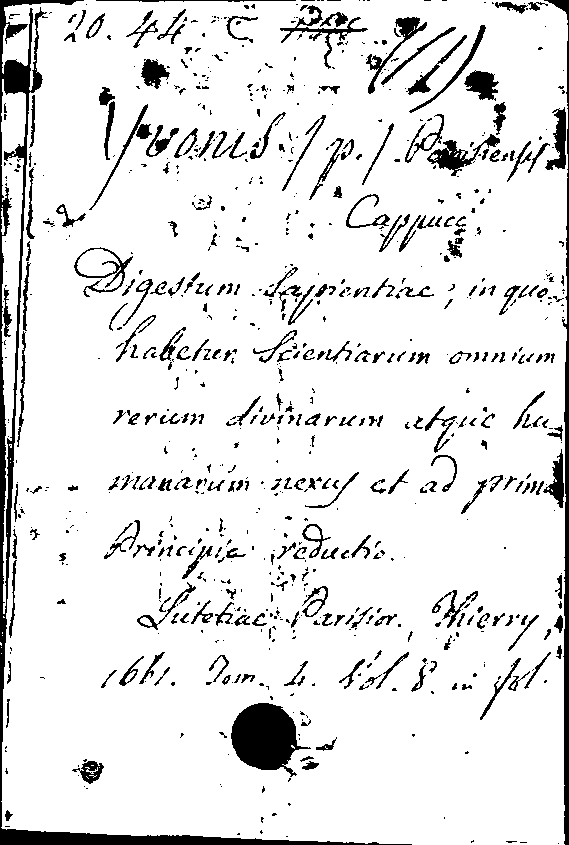 20. 44. C
(1)
Yvonis / p. / Parisiensis
Cappucc.
Digestum Sapientiae, in quo
habetur Scientiarum omnium
rerum divinarum atque hu-
manarum nexus et ad prima
Principia reductio.
Lutetiae Parisior., Thierry,
1661. Tom. 4. Vol. 8. in fol.